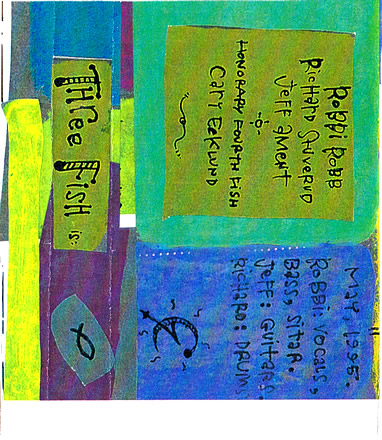 THREE FISH is:
ROBBI ROBB
RICHARD STUVERUD
JEFF AMENT
HONORARY FOURTH FISH
CARY ECKLUND
MAY, 1995.
ROBBI: VOCALS,
BASS, SITAR.
JEFF: GUITARS
RICHARD: DRUMS